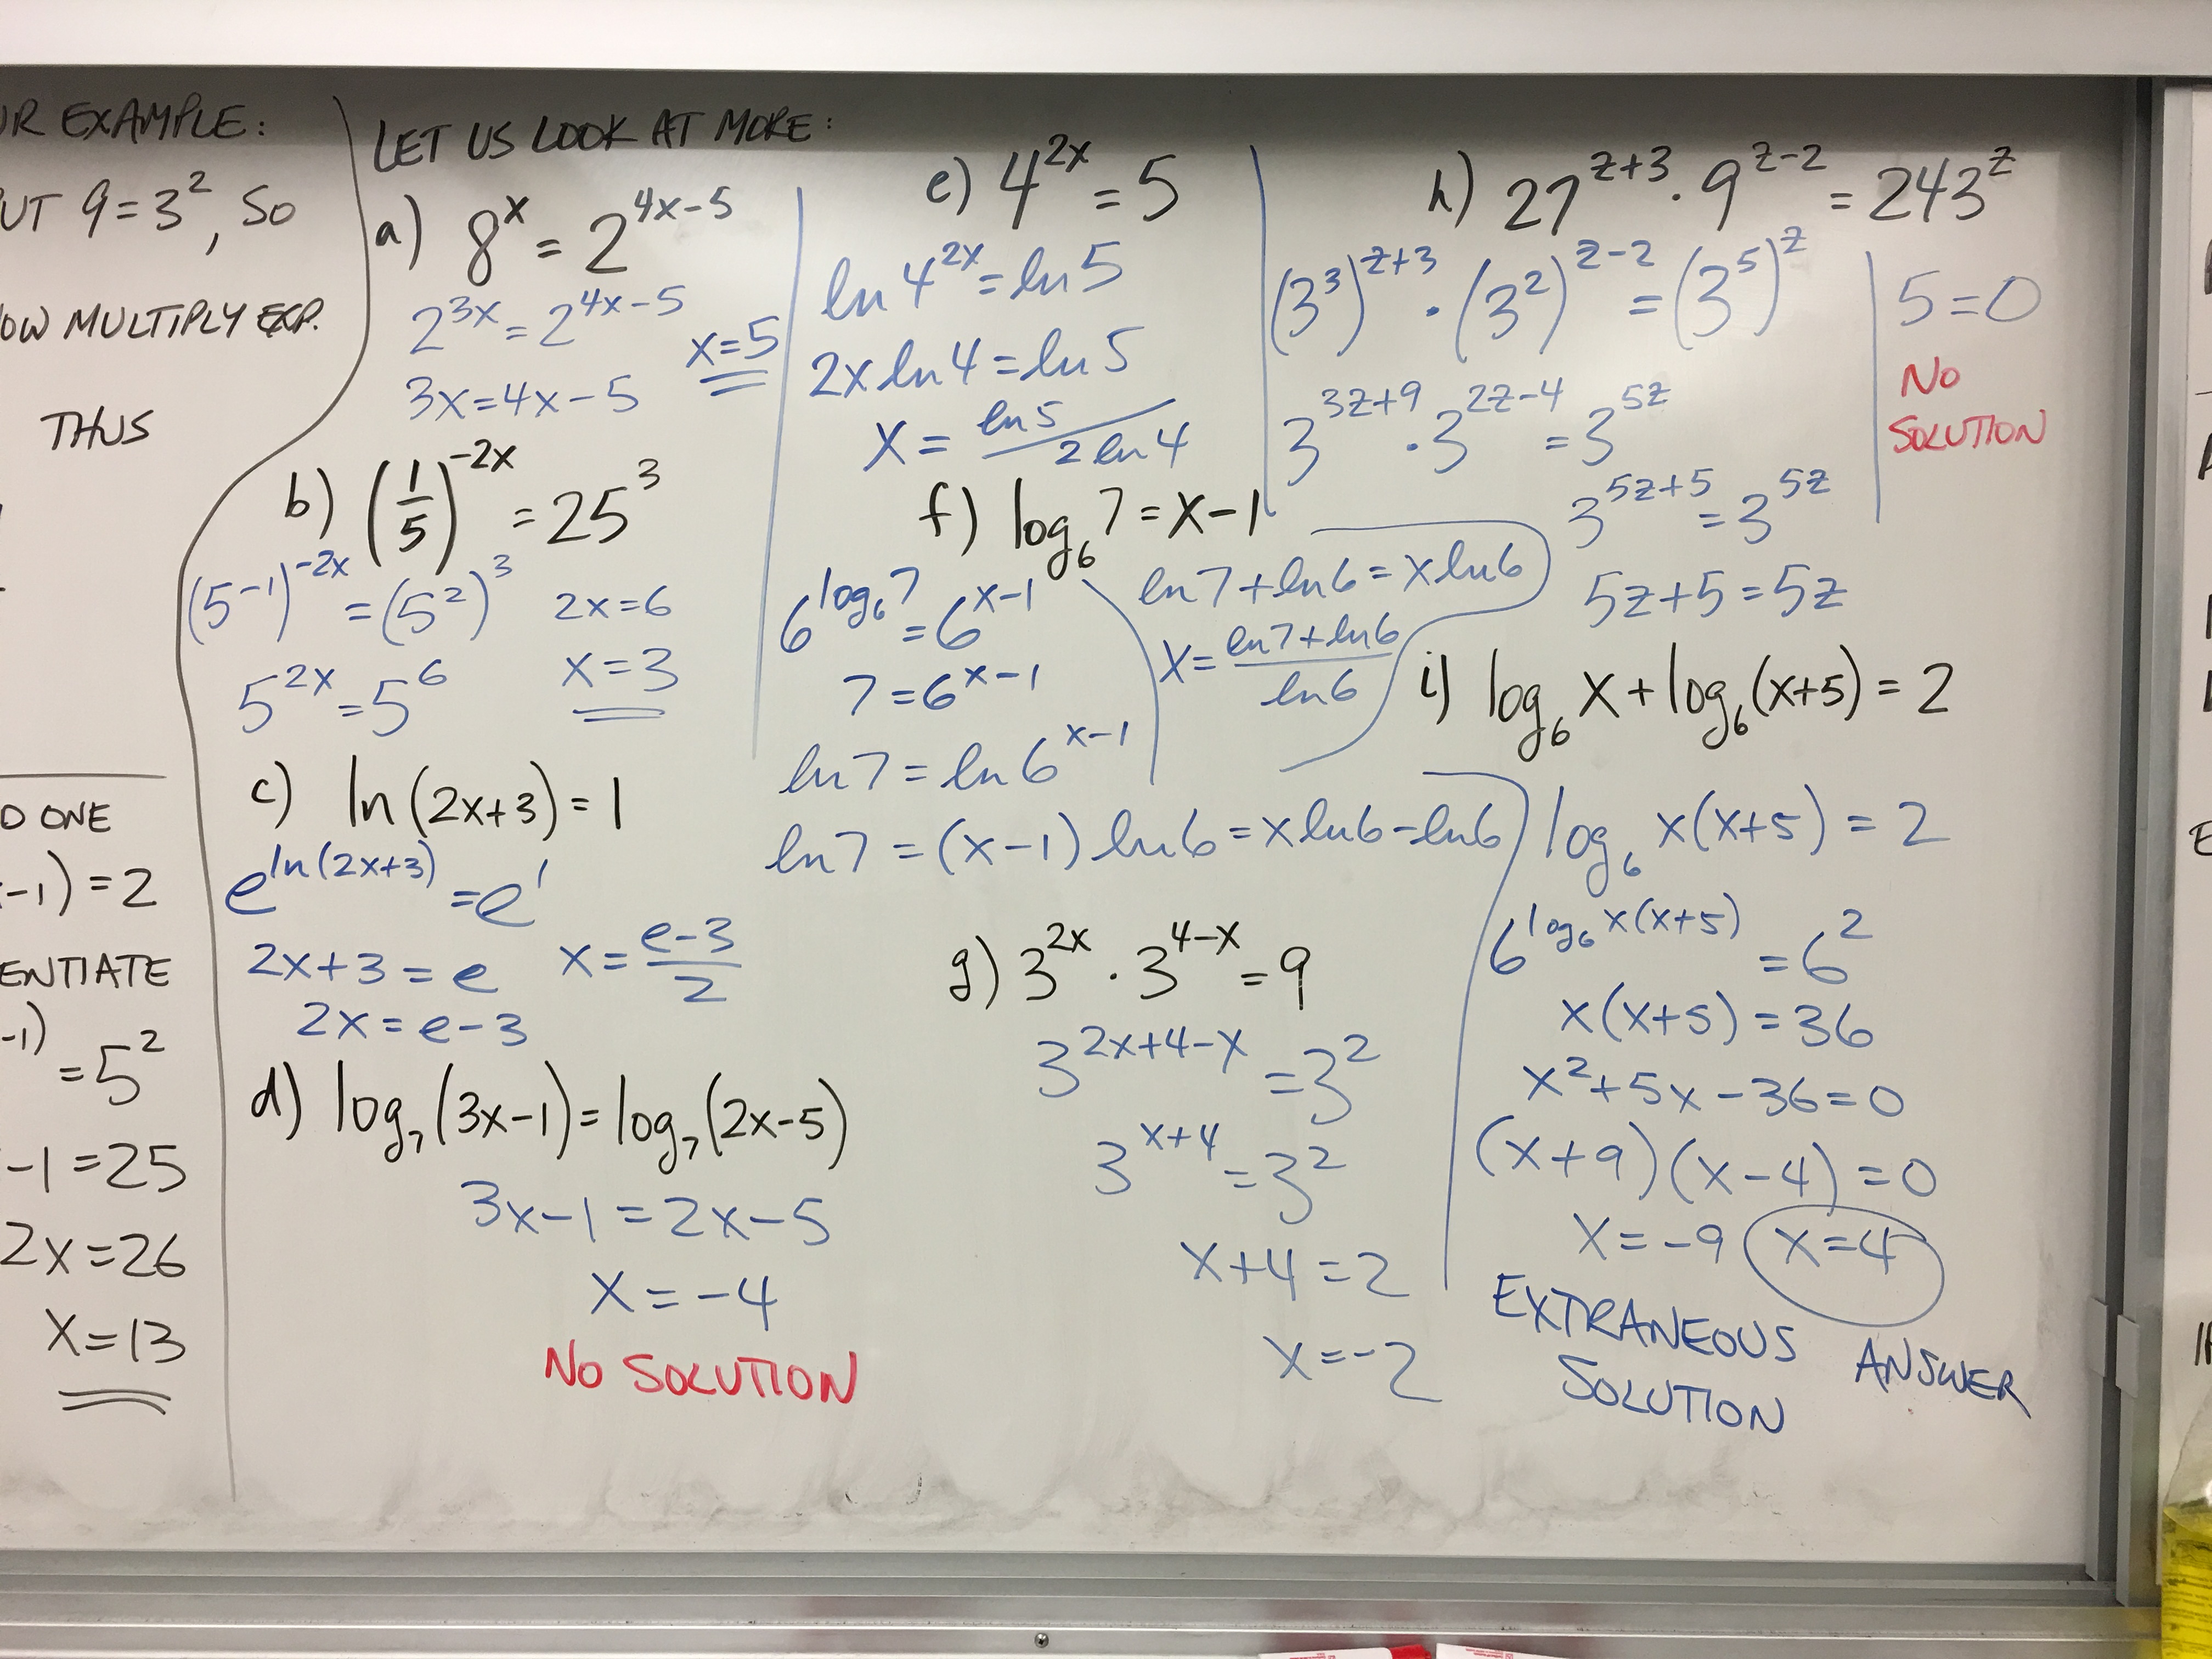 UR EXAMPLE:
UT 9 = 3², SO
OW MULTIPLY EXP.
THUS
D ONE
-1) = 2
ENTIATE
-1) = 5²
-1 = 25
2x = 26
x = 13
LET US LOOK AT MORE:
a) 8^x = 2^(4x-5)
2^(3x) = 2^(4x-5)
3x = 4x - 5
x = 5
b) (1/5)^(-2x) = 25³
(5^(-1))^(-2x) = (5²)³
5^(2x) = 5^6
2x = 6
x = 3
c) ln(2x+3) = 1
e^(ln(2x+3)) = e^1
2x+3 = e
2x = e-3
x = (e-3)/2
d) log₇(3x-1) = log₇(2x-5)
3x-1 = 2x-5
x = -4
NO SOLUTION
e) 4^(2x) = 5
ln 4^(2x) = ln 5
2x ln 4 = ln 5
x = ln 5 / 2 ln 4
f) log₆ 7 = x-1
6^(log₆ 7) = 6^(x-1)
7 = 6^(x-1)
ln 7 = ln 6^(x-1)
ln 7 = (x-1) ln 6 = x ln 6 - ln 6
ln 7 + ln 6 = x ln 6
x = (ln 7 + ln 6)/ln 6
g) 3^(2x) · 3^(4-x) = 9
3^(2x+4-x) = 3²
3^(x+4) = 3²
x+4 = 2
x = -2
h) 27^(z+3) · 9^(z-2) = 243^z
(3³)^(z+3) · (3²)^(z-2) = (3^5)^z
3^(3z+9) · 3^(2z-4) = 3^(5z)
3^(5z+5) = 3^(5z)
5z+5 = 5z
5 = 0
NO
SOLUTION
i) log₆ x + log₆(x+5) = 2
log₆ x(x+5) = 2
6^(log₆ x(x+5)) = 6²
x(x+5) = 36
x²+5x-36 = 0
(x+9)(x-4) = 0
x = -9 x = 4
EXTRANEOUS
SOLUTION
ANSWER